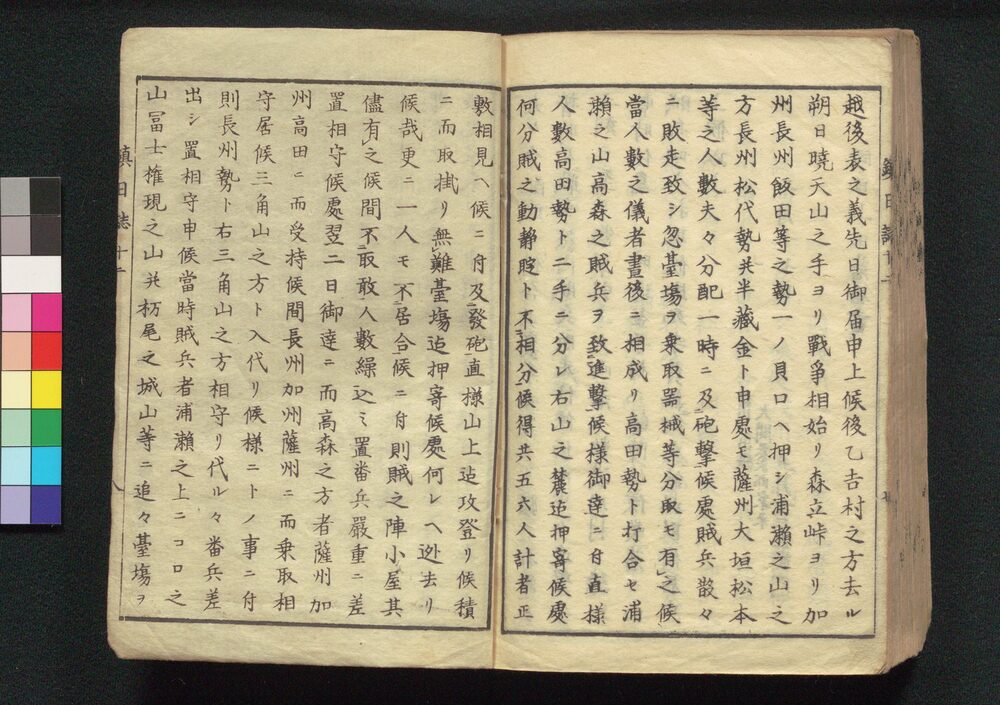 越後表之義先日御届申上候後乙吉村之方去ル
朔日曉天山之手ヨリ戰爭相始リ森立峠ヨリ加
州長州飯田等之勢一ノ貝口ヘ押シ浦瀨之山之
方長州松代勢并半藏金ト申處モ薩州大垣松本
等之人數夫々分配一時ニ及砲擊候處賊兵散々
ニ敗走致シ忽臺塲ヲ乗取器械等分取モ有之候
當人數之儀者晝後ニ相成リ高田勢ト打合セ浦
瀨之山高森之賊兵ヲ致進擊候樣御達ニ付直樣
人數高田勢ト二手ニ分レ右山之麓迠押寄候處
何分賊之動靜睼ト不相分候得共五六人計者正
敷相見ヘ候ニ付及發砲直樣山上迠攻登リ候積
ニ而取掛リ無難臺塲迠押寄候處何レヘ迯去リ
候哉更ニ一人モ不居合候ニ付則賊之陣小屋其
儘有之候間不取敢人數繰込ミ置番兵嚴重ニ差
置相守候處翌二日御達ニ而高森之方者薩州加
州高田ニ而受持候間長州加州薩州ニ而乗取相
守居候三角山之方ト入代リ候樣ニトノ事ニ付
則長州勢ト右三角山之方相守リ代ル々番兵差
出シ置相守申候當時賊兵者浦瀨之上ニコロ之
山冨士権現之山并枥尾之城山等ニ追々臺塲ヲ
鎮日誌十二
八